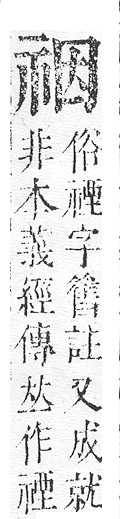 䄄
俗禋字舊註又成就
非本義經傳𠀤作禋